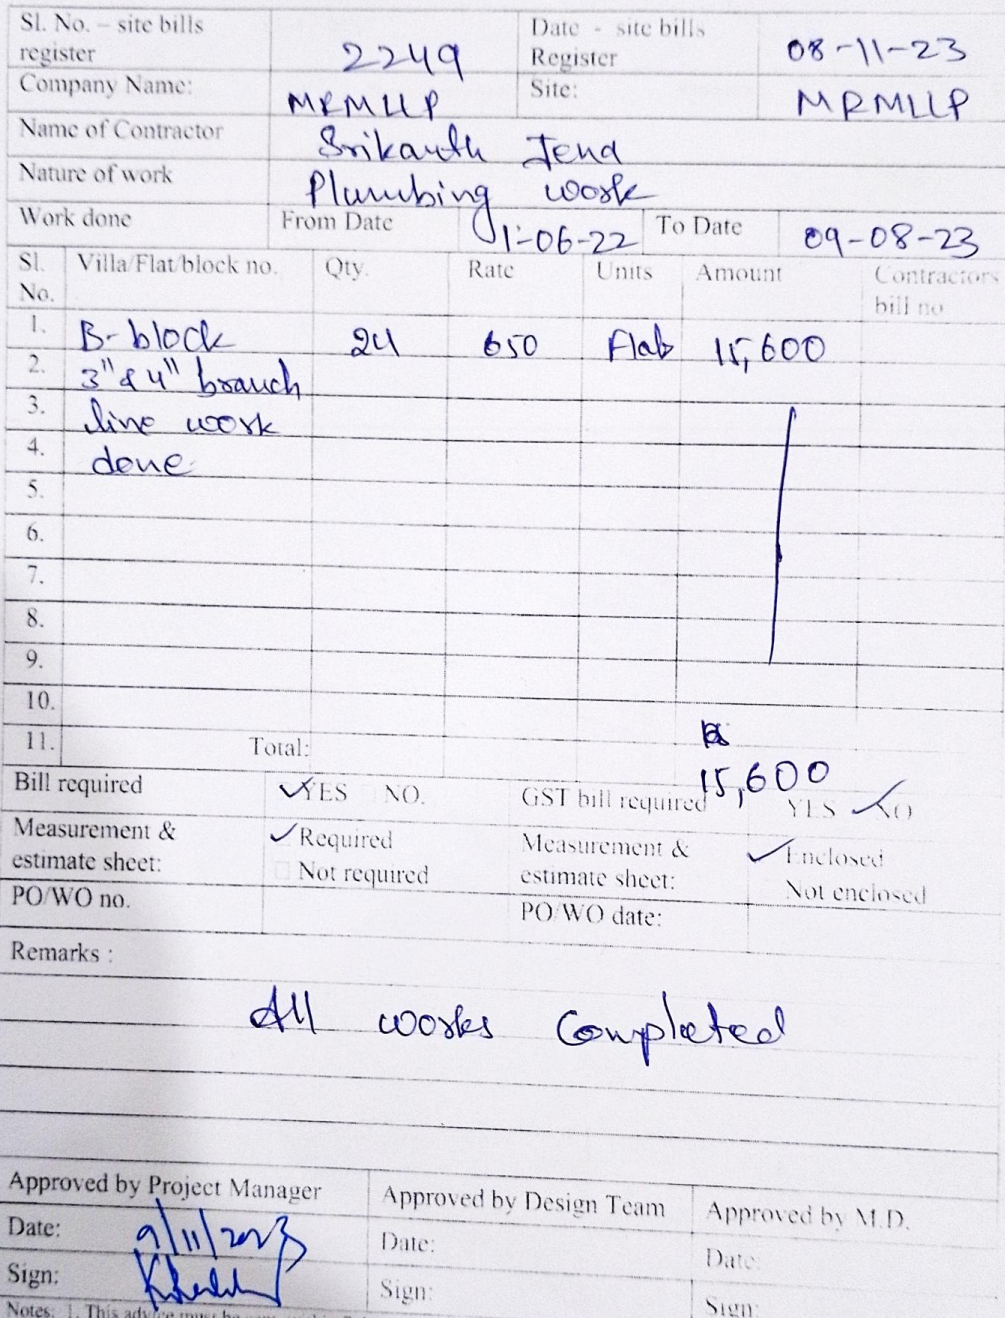 Sl. No. – site bills register 2249 Date - site bills Register 08-11-23
Company Name: MRMLLP Site: MRMLLP
Name of Contractor Srikanth Jena
Nature of work Plumbing work
Work done From Date 1-06-22 To Date 09-08-23
Sl. No. Villa/Flat/block no. Qty. Rate Units Amount Contractors bill no
1. B-block 24 650 Flat 15,600
2. 3" & 4" branch
3. line work
4. done
5.
6.
7.
8.
9.
10.
11. Total: 15,600
Bill required YES NO. GST bill required YES NO
Measurement & estimate sheet: Required Not required Measurement & estimate sheet: Enclosed Not enclosed
PO/WO no. PO/WO date:
Remarks :
All works Completed
Approved by Project Manager Approved by Design Team Approved by M.D.
Date: 9/11/2023 Date: Date:
Sign: Sign: Sign:
Notes: 1. This advice must be